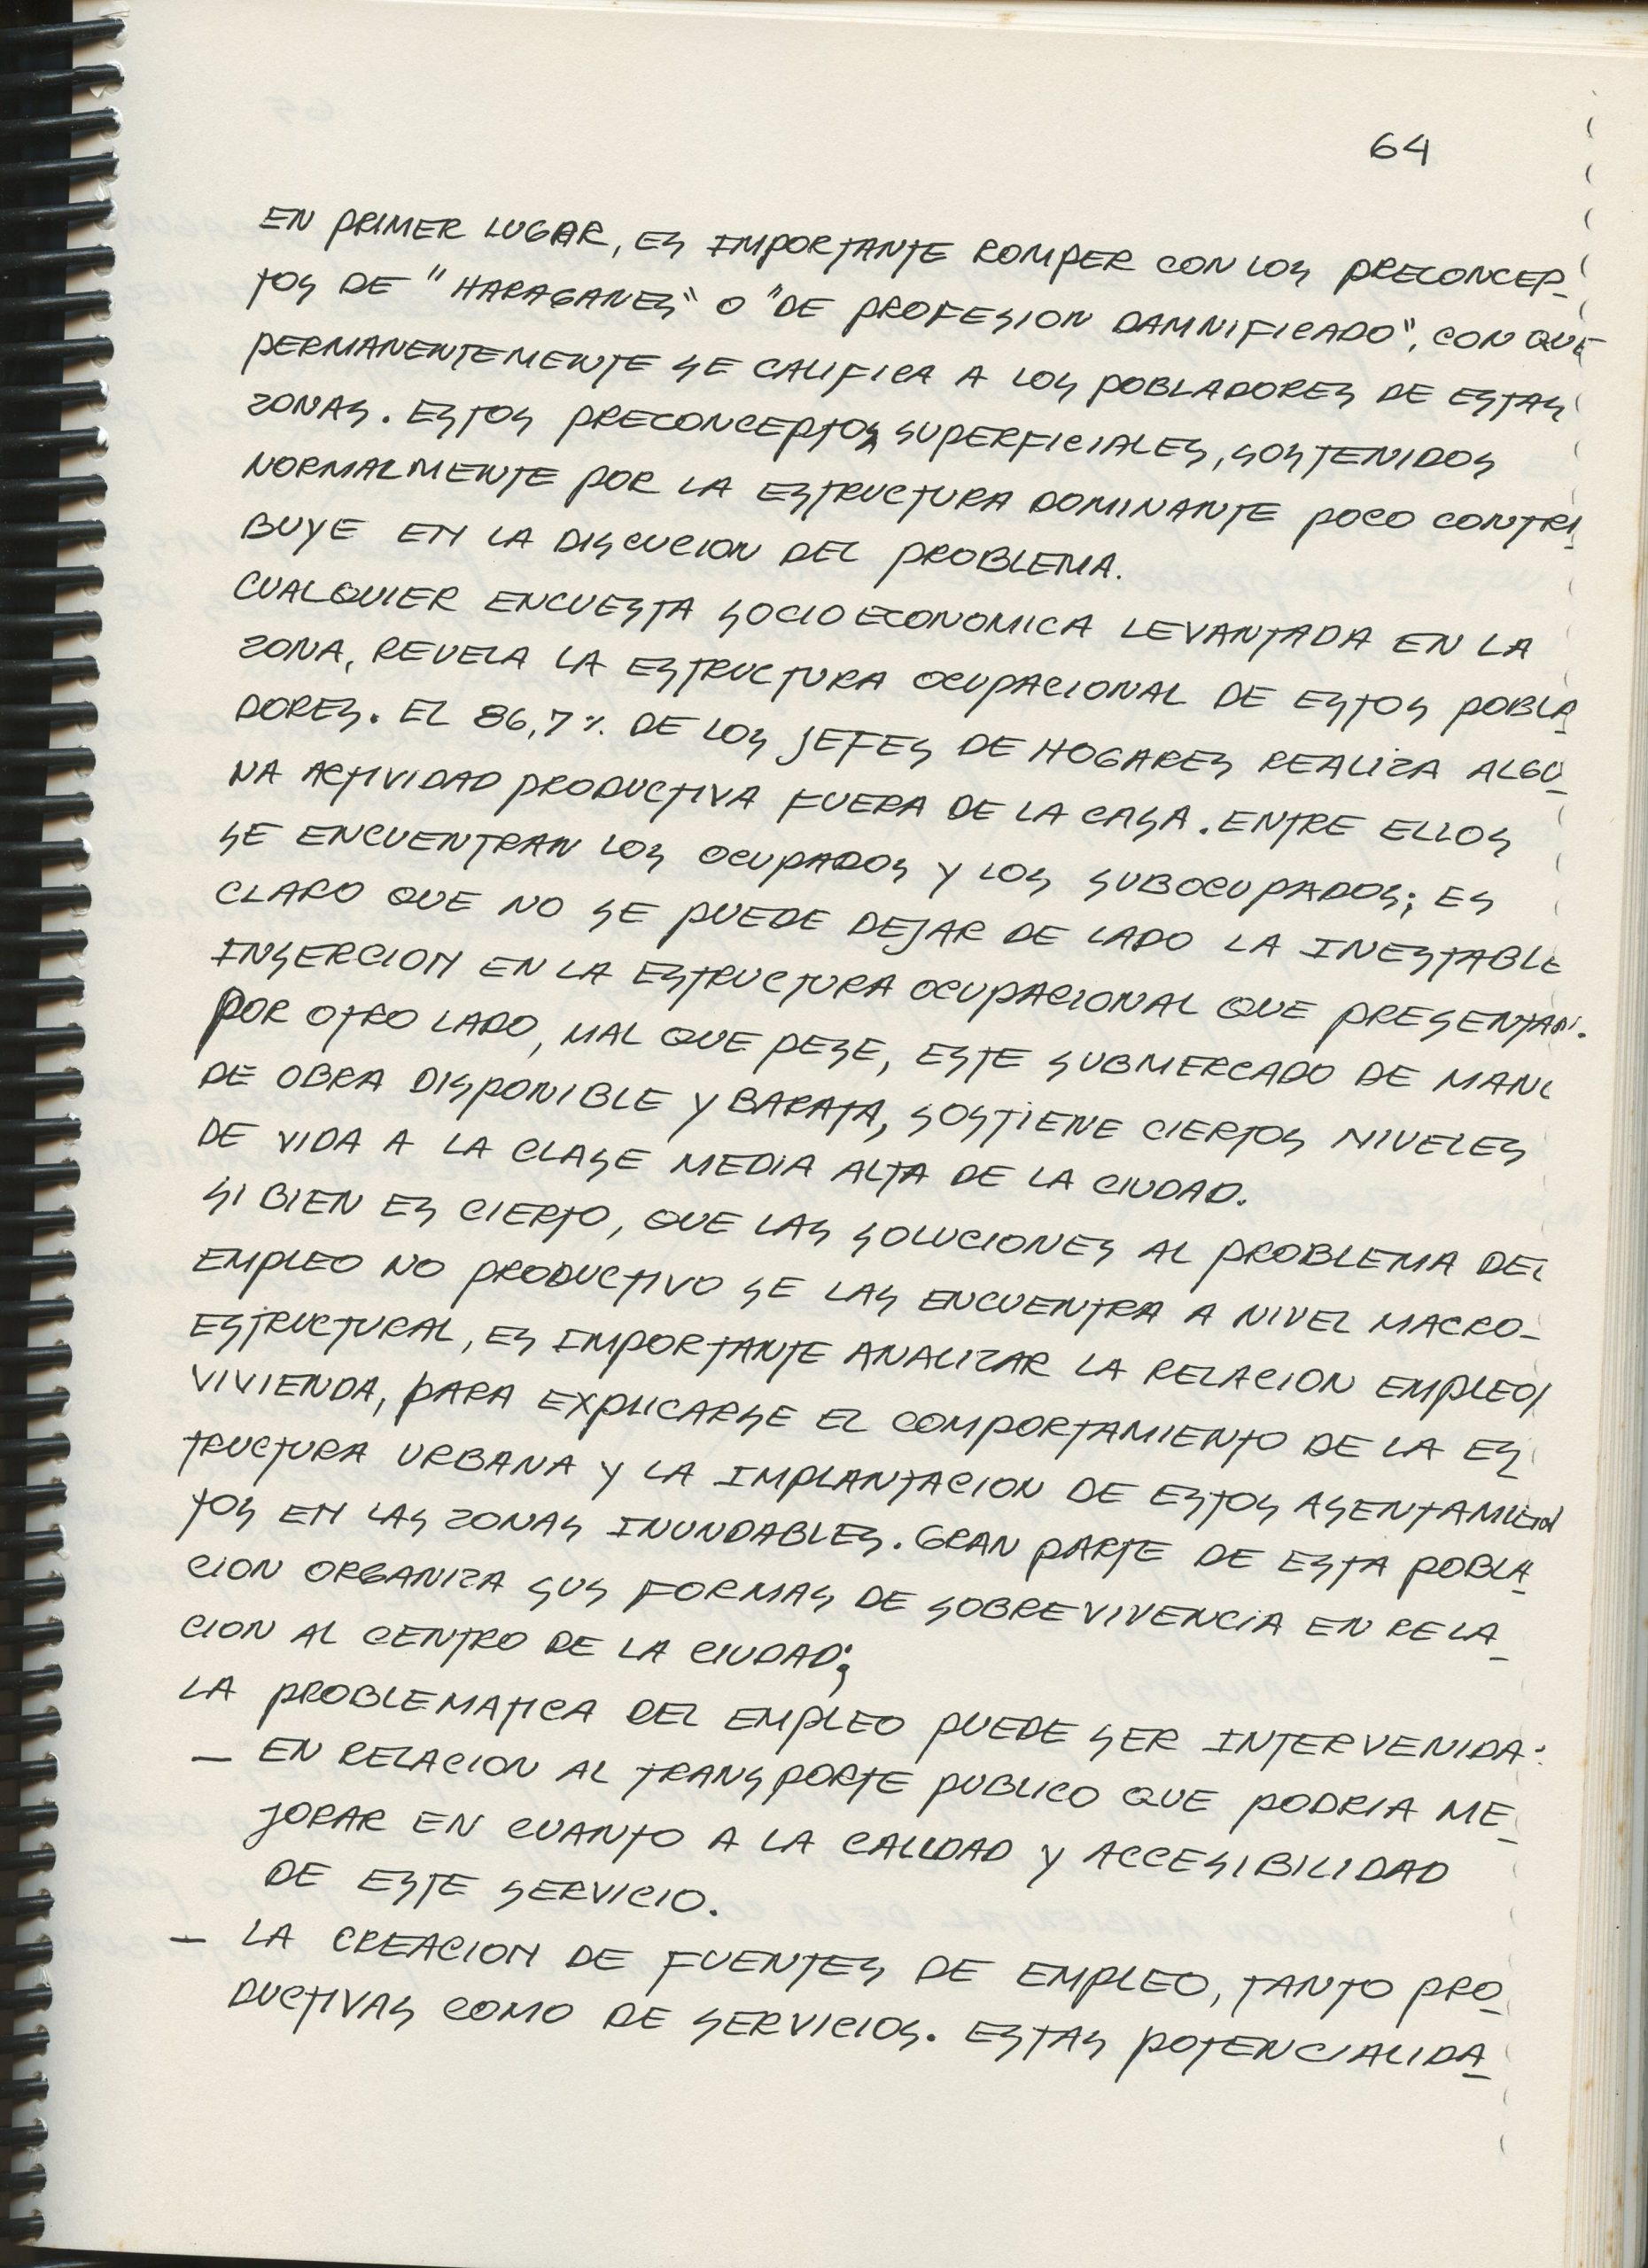 64
EN PRIMER LUGAR, ES IMPORTANTE ROMPER CON LOS PRECONCEP_
TOS DE "HARAGANES" O "DE PROFESION DAMNIFICADO", CON QUE
PERMANENTEMENTE SE CALIFICA A LOS POBLADORES DE ESTAS
ZONAS. ESTOS PRECONCEPTOS SUPERFICIALES, SOSTENIDOS
NORMALMENTE POR LA ESTRUCTURA DOMINANTE POCO CONTRI_
BUYE EN LA DISCUCION DEL PROBLEMA.
CUALQUIER ENCUESTA SOCIOECONOMICA LEVANTADA EN LA
ZONA, REVELA LA ESTRUCTURA OCUPACIONAL DE ESTOS POBLA_
DORES. EL 86,7% DE LOS JEFES DE HOGARES REALIZA ALGU_
NA ACTIVIDAD PRODUCTIVA FUERA DE LA CASA. ENTRE ELLOS
SE ENCUENTRAN LOS OCUPADOS Y LOS SUBOCUPADOS; ES
CLARO QUE NO SE PUEDE DEJAR DE LADO LA INESTABLE
INSERCION EN LA ESTRUCTURA OCUPACIONAL QUE PRESENTAN.
POR OTRO LADO, MAL QUE PESE, ESTE SUBMERCADO DE MANO
DE OBRA DISPONIBLE Y BARATA, SOSTIENE CIERTOS NIVELES
DE VIDA A LA CLASE MEDIA ALTA DE LA CIUDAD.
SI BIEN ES CIERTO, QUE LAS SOLUCIONES AL PROBLEMA DEL
EMPLEO NO PRODUCTIVO SE LAS ENCUENTRA A NIVEL MACRO-
ESTRUCTURAL, ES IMPORTANTE ANALIZAR LA RELACION EMPLEO/
VIVIENDA, PARA EXPLICARSE EL COMPORTAMIENTO DE LA ES_
TRUCTURA URBANA Y LA IMPLANTACION DE ESTOS ASENTAMIEN
TOS EN LAS ZONAS INUNDABLES. GRAN PARTE DE ESTA POBLA_
CION ORGANIZA SUS FORMAS DE SOBREVIVENCIA EN RELA_
CION AL CENTRO DE LA CIUDAD;
LA PROBLEMATICA DEL EMPLEO PUEDE SER INTERVENIDA:
- EN RELACION AL TRANSPORTE PUBLICO QUE PODRIA ME_
JORAR EN CUANTO A LA CALIDAD Y ACCESIBILIDAD
DE ESTE SERVICIO.
- LA CREACION DE FUENTES DE EMPLEO, TANTO PRO_
DUCTIVAS COMO DE SERVICIOS. ESTAS POTENCIALIDA_